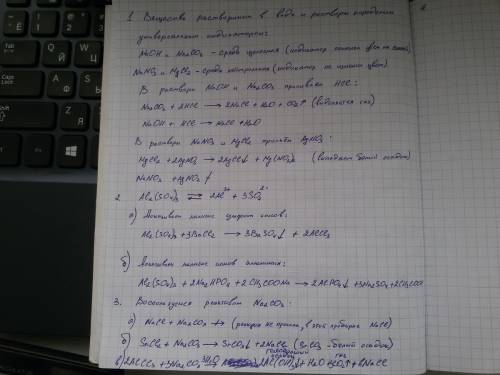 1. Вещества растворим в воде и растворы
универсальным индикатором:
NaOH и Na₂CO₃ - среда щелочная (индикатор
NaNO₃ и MgCl₂ - среда нейтральная (индикатор не цвет)
В растворы NaOH и Na₂CO₃ приливаем HCl:
Na₂CO₃ + 2HCl → 2NaCl + H₂O + CO₂↑ (выделяется газ)
NaOH + HCl → NaCl + H₂O
В растворы NaNO₃ и MgCl₂ прильём AgNO₃:
MgCl₂ + 2AgNO₃ → 2AgCl↓ + Mg(NO₃)₂ (выпадает белый осадок)
NaNO₃ + AgNO₃ ↛
2. Al₂(SO₄)₃ ⇄ 2Al³⁺ + 3SO₄²⁻
а) Докажем наличие сульфат ионов:
Al₂(SO₄)₃ + 3BaCl₂ → 3BaSO₄↓ + 2AlCl₃
б) Докажем наличие ионов алюминия:
Al₂(SO₄)₃ + 2Na₂HPO₄ + 2CH₃COONa → 2AlPO₄↓ + 3Na₂SO₄ + 2CH₃COOH
3. Воспользуемся реактивом Na₂CO₃:
а) NaCl + Na₂CO₃ ↛ (реакция не прошла, в этой пробирке NaCl)
б) SrCl₂ + Na₂CO₃ → SrCO₃↓ + 2NaCl (SrCO₃ - белый осадок)
в) 2AlCl₃ + 3Na₂CO₃ 3H₂O → 2Al(OH)₃↓ + 3CO₂↑ + 6NaCl
осадок газ